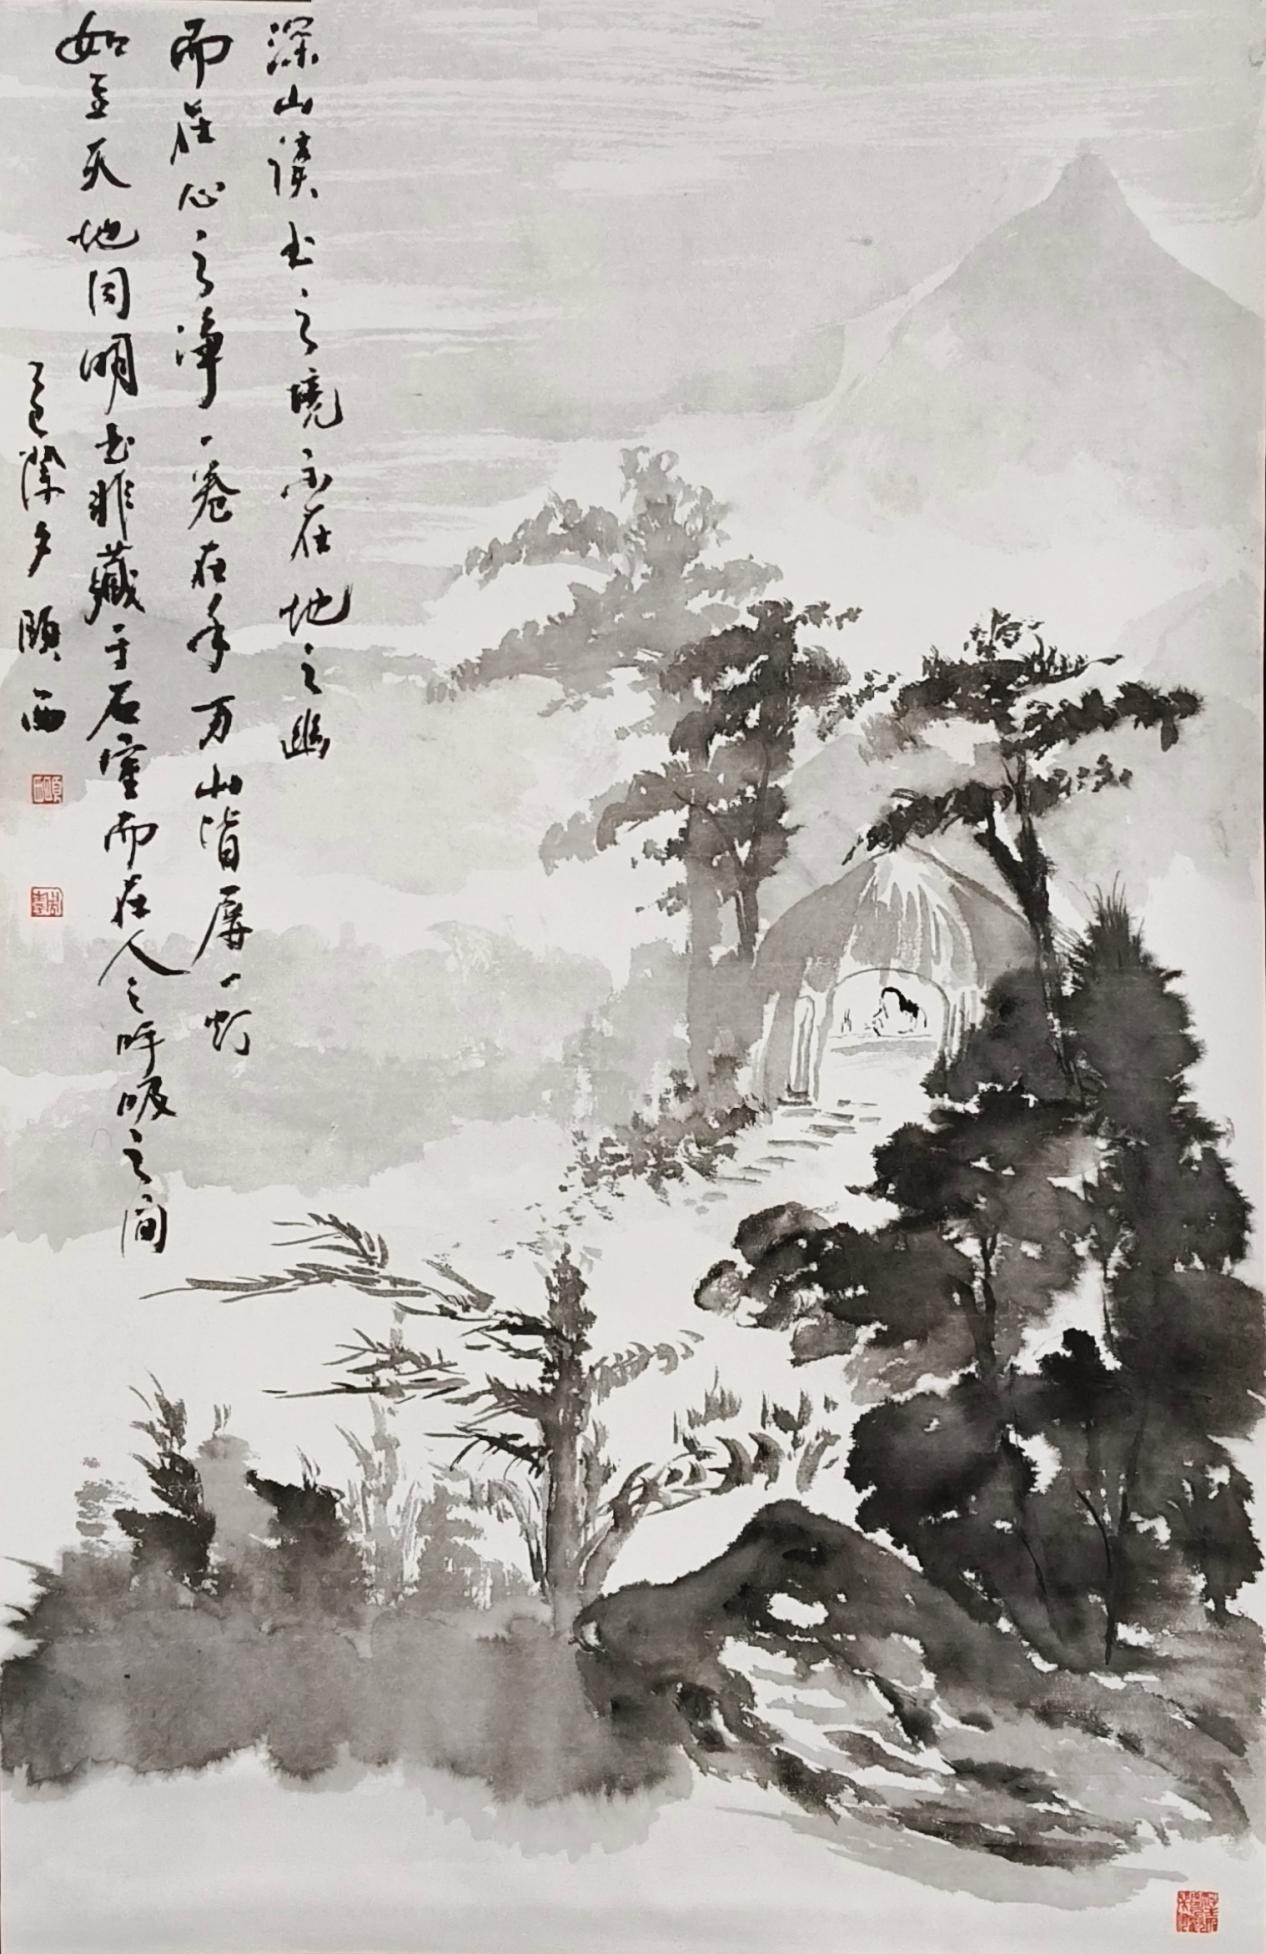 深山读书之境不在地之幽
而在心之净一卷在手万山皆屏一灯
如豆天地同明书非藏于石室而在人之呼吸之间
乙巳除夕颐西